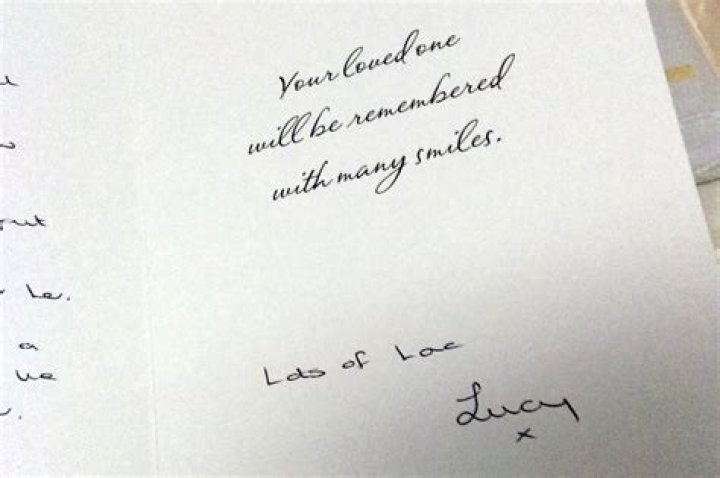 Your loved one
will be remembered
with many smiles.
Lots of Love
Lucy
x